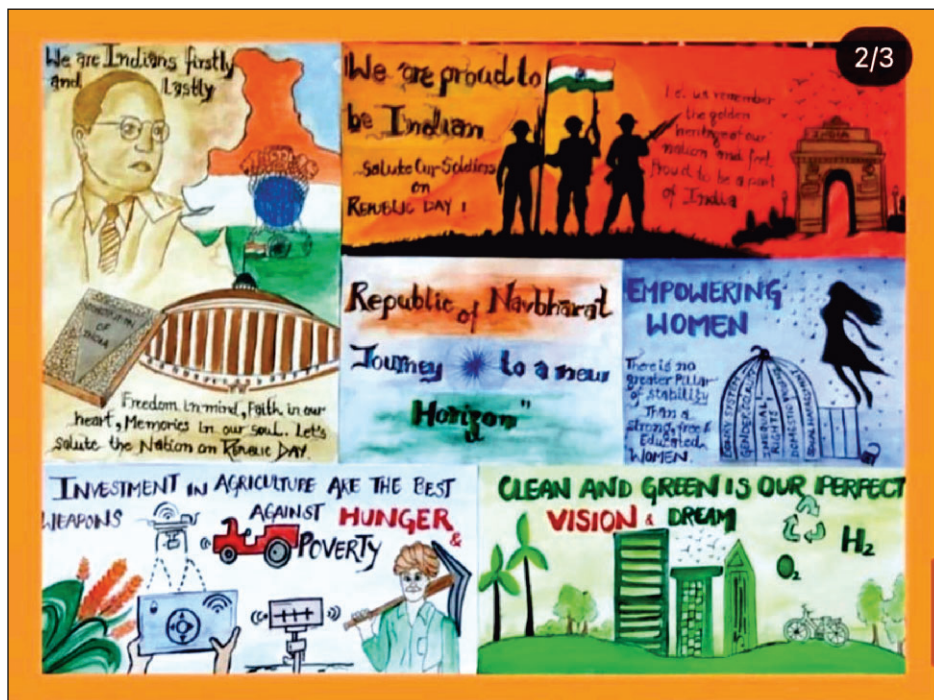 2/3
We are Indians firstly
and Lastly
CONSTITUTION
OF
INDIA
Freedom in mind, Faith in our
heart, Memories in our soul.. Let's
salute the Nation on REPUBLIC DAY.
We are proud to
be Indian
Salute Our Soldiers
on
REPUBLIC DAY !
Let us remember
the golden
heritage of our
nation and feel
Proud to be a part
of India
INDIA
Republic of Navbharat
Journey to a new
Horizon"
EMPOWERING
WOMEN
There is no
greater Pillar
of stability
Than a
strong, free &
Educated
WOMEN.
DOWRY SYSTEM
GENDER EQUALITY
UNEQUAL
RIGHTS
DOMESTIC
INVESTMENT IN AGRICULTURE ARE THE BEST
WEAPONS AGAINST HUNGER
& POVERTY
CLEAN AND GREEN IS OUR PERFECT
VISION & DREAM
H2
O2